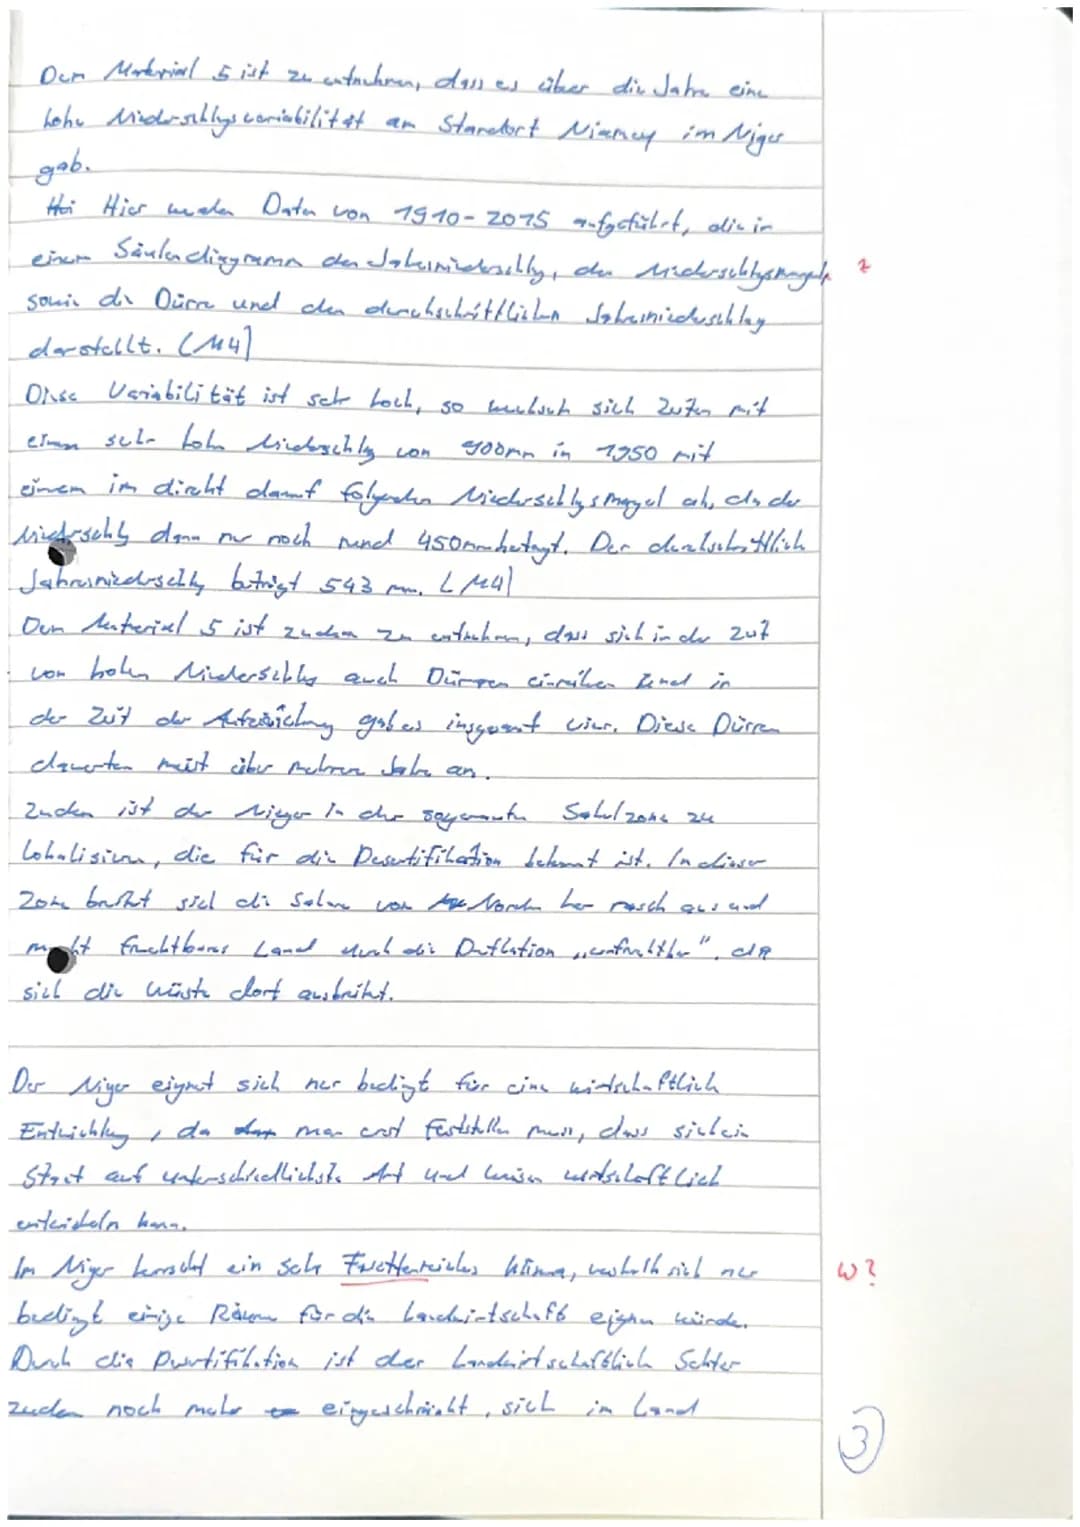 Dem Material 5 ist zu entnehmen, dass es über die Jahre eine
hohe Niederschlagsvariabilität am Standort Niamey im Niger
gab.
Hier werden Daten von 1910-2015 aufgeführt, die in
einem Säulendiagramm den Jahresniederschlag, den Niederschlagsmangel,
sowie die Dürre und den durchschnittlichen Jahresniederschlag
darstellt. (M4)
Diese Variabilität ist sehr hoch, so wechseln sich Zeiten mit
einem sehr hohen Niederschlag von 900mm in 1950 mit
einem im direkt darauf folgenden Niederschlagsmangel ab, da der
Niederschlag dann nur noch rund 450mm beträgt. Der durchschnittlich
Jahresniederschlag beträgt 543 mm. (M4)
Dem Material 5 ist zudem zu entnehmen, dass sich in der Zeit
von hohen Niederschlag auch Dürren einreihen und in
der Zeit der Aufzeichnung gab es insgesamt vier. Diese Dürren
dauerten meist über mehrere Jahre an.
Zudem ist der Niger in der sogenannten Sahelzone zu
lokalisieren, die für die Desertifikation bekannt ist. In dieser
Zone breitet sich die Sahara von Norden her rasch aus und
macht fruchtbares Land durch die Deflation „unfruchtbar", da
sich die Wüste dort ausbreitet.
Der Niger eignet sich nur bedingt für eine wirtschaftlich
Entwicklung, da man erst feststellen muss, dass sich ein
Staat auf unterschiedlichste Art und Weisen wirtschaftlich
entwickeln kann.
Im Niger herrscht ein sehr Facettenreiches Klima, weshalb sich nur W?
bedingt einige Räume für die Landwirtschaft eignen würde.
Durch die Desertifikation ist der Landwirtschaftlich Sektor
zudem noch mehr eingeschränkt, sich im Land
3